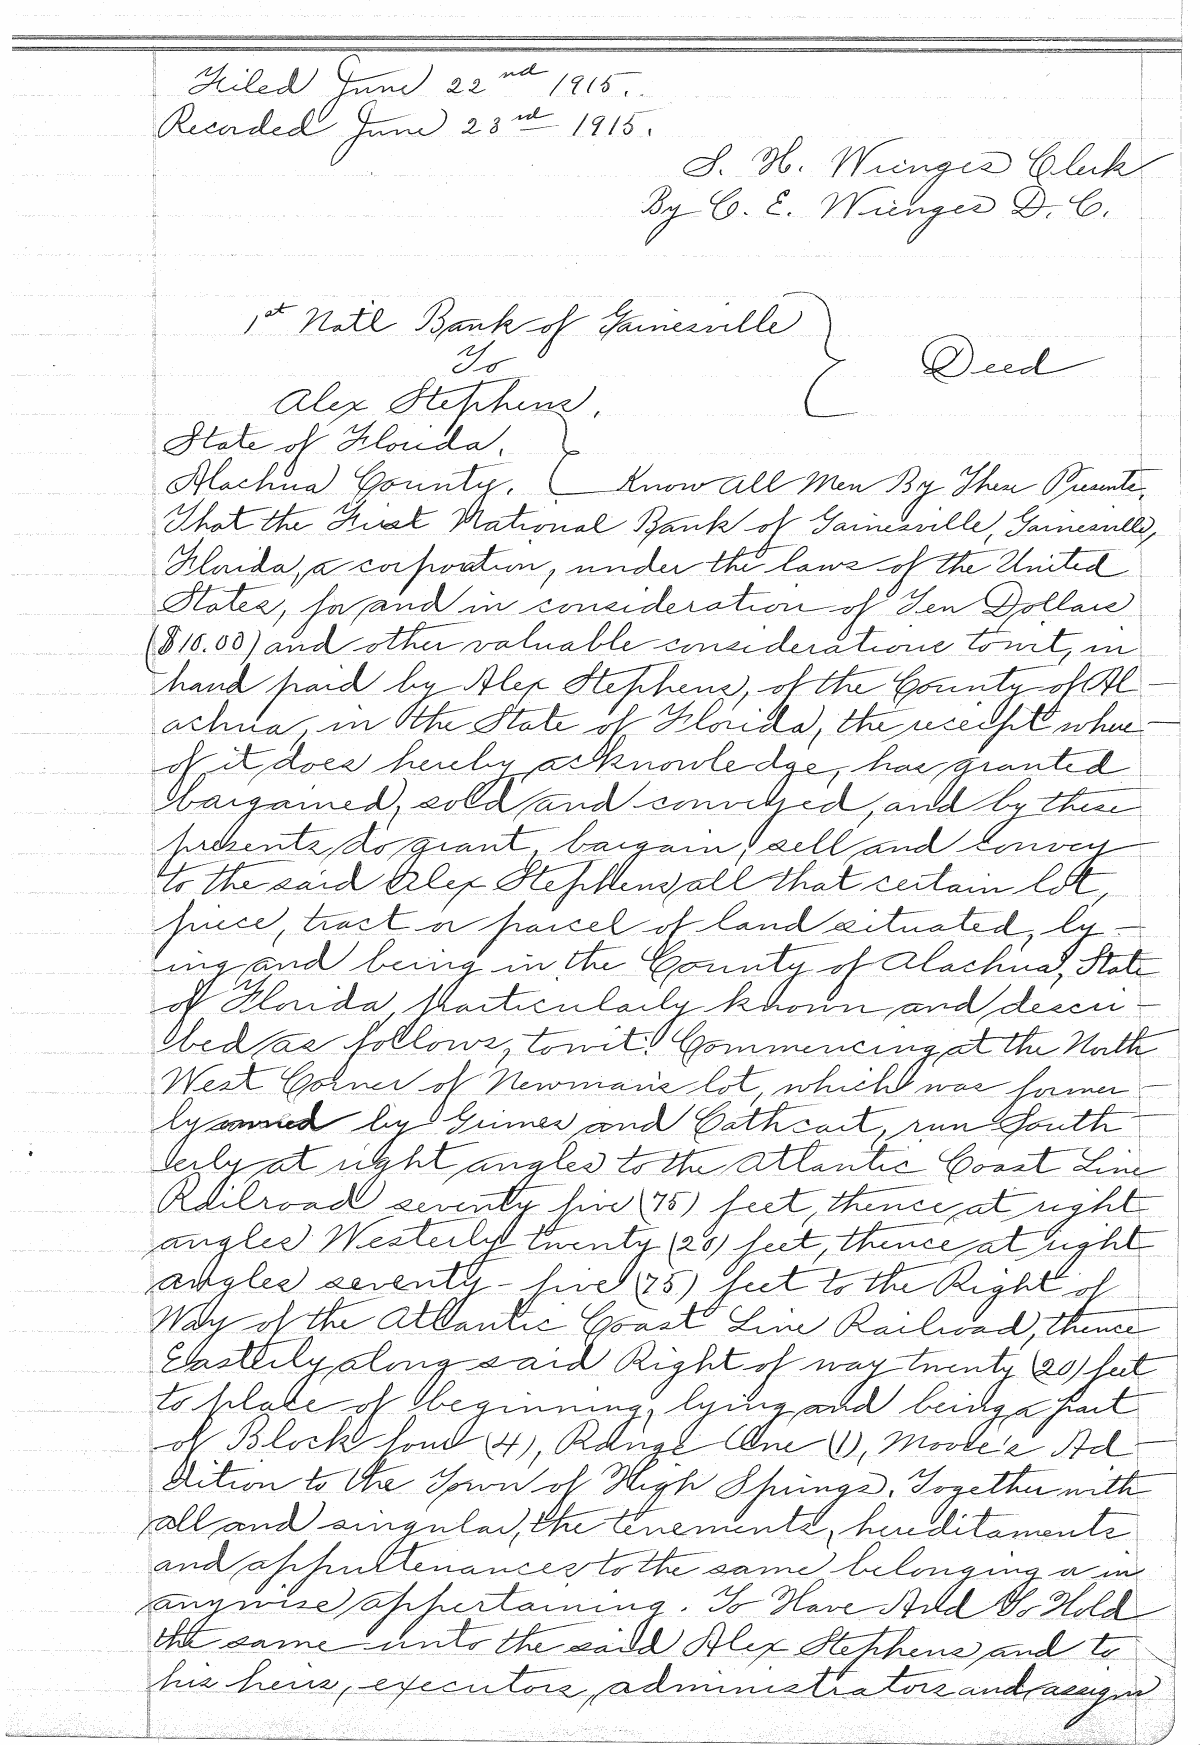 Filed June 22nd 1915.
Recorded June 23rd 1915.
S. H. Wienges Clerk
By C. E. Wienges D. C.
1st Nat'l Bank of Gainesville
To
Deed
Alex Stephens.
State of Florida.
Alachua County. Know All Men By These Presents,
That the First National Bank of Gainesville, Gainesville,
Florida, a corporation, under the laws of the United
States, for and in consideration of Ten Dollars
($10.00) and other valuable considerations towit, in
hand paid by Alex Stephens, of the County of Al-
achua, in the State of Florida, the receipt where-
of it does hereby acknowledge, has granted
bargained, sold and conveyed, and by these
presents do grant, bargain, sell and convey
to the said Alex Stephens all that certain lot,
piece, tract or parcel of land situated, ly-
ing and being in the County of Alachua, State
of Florida, particularly known and descri-
bed as follows, towit: Commencing at the North
West Corner of Newman's lot, which was former-
ly owned by Grimes and Cathcart, run South
erly at right angles to the Atlantic Coast Line
Railroad seventy five (75) feet, thence at right
angles Westerly twenty (20) feet, thence at right
angles seventy-five (75) feet to the Right of
Way of the Atlantic Coast Line Railroad, thence
Easterly along said Right of way twenty (20) feet
to place of beginning, lying and being a part
of Block four (4), Range One (1), Moore's Ad-
dition to the Town of High Springs. Together with
all and singular, the tenements, hereditaments
and appurtenances to the same belonging or in
anywise appertaining. To Have And To Hold
the same unto the said Alex Stephens and to
his heirs, executors, administrators and assigns